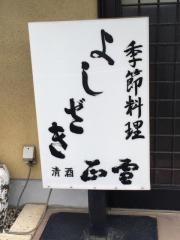 季節料理
よしざき
清酒 正雪